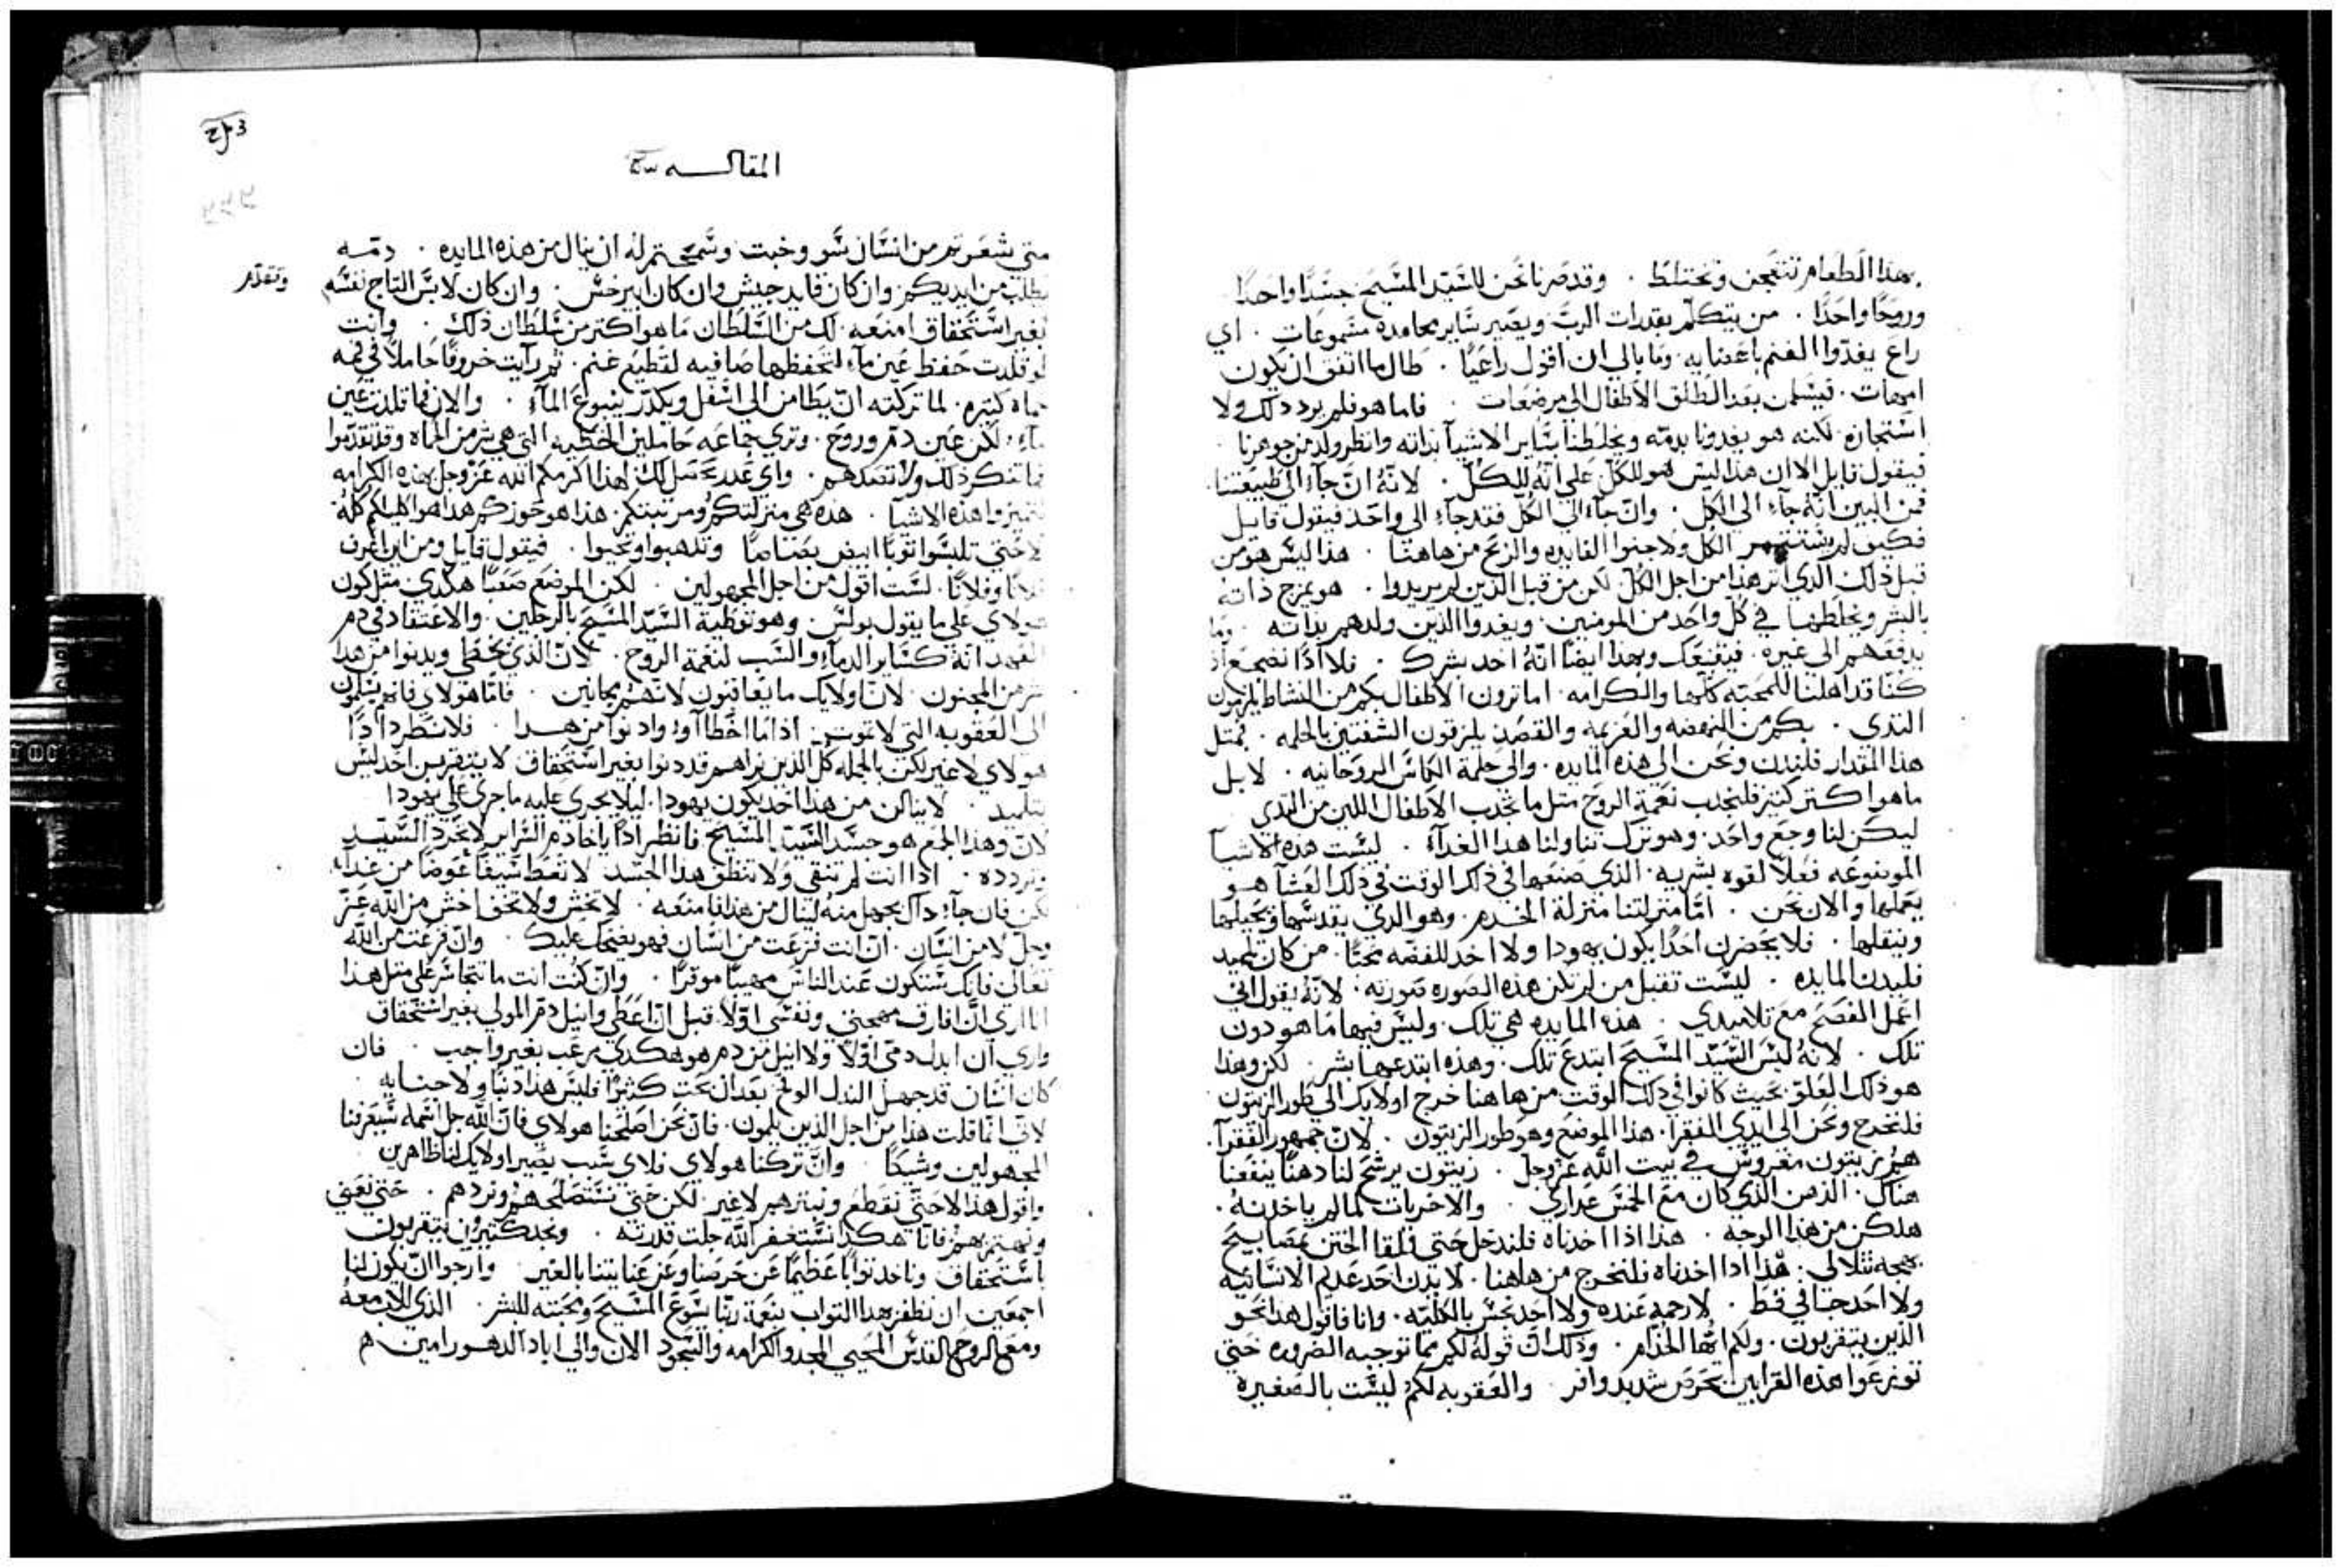 بهذا الطعام نتعجن ونختلط . وقد صرنا نحن للسيد المسيح جسدًا واحدًا
وروحًا واحدًا . من يتكلم بقدرات الرب ويصير ساير محامده مسموعات . اي
راع يغدوا الغنم باعضايه . وما بالي ان اقول راعيًا . طال ما اتفق ان يكون
امهات . فيسلمن بعد الطلق الاطفال الى مرضعات . فاما هو فلم يرد ذلك ولا
استجازه . لكنه هو يغدونا بدمه ويخلطنا بساير الاشيآ بذاته وانظر ولد من جوهرنا .
فيقول قايل الا ان هذا ليس هو للكل على انه للكل . لانه ان جآء الى طبيعتنا
فمن البين انه جآء الى الكل . وان جآء الى الكل فقد جآء الى واحد فيقول قايل
فكيف لم الكل ولا جنوا الفايده والربح من هاهنا . هذا ليس هو من
قبل ذلك الذي اثر هذا من اجل الكل لكن من قبل الذين لم يريدوا . هو يمزج ذاته
بالسر ويخلطها في كل واحد من المومنين . ويغدوا الذين ولدهم بذاته . وما
يدفعهم الى غيره . فيقنعك وبهذا ايضًا انه اخذ بشرتك . فلا اذًا نضجع اذ
كنا قد اهلنا للمحبه كلها والكرامه . اما ترون الاطفال بكم من النشاط يلزمون
الثدي . بكم من النهضه والعزيمه والقصد يلزقون الشفتين بالحلمه . فبمثل
هذا المقدار فلندن ونحن الى هذه المايده . والى حلمة الكاس الروحانيه . لا بل
ما هو اكثر كثيرًا فلنجذب نعمة الروح مثل ما تجذب الاطفال اللبن من الثدي
ليكن لنا وجع واحد . وهو ترك تناولنا هذا الغدآء . ليست هذه الاشيآ
الموضوعه فعلاً لقوه بشريه . الذي صنعها في ذلك الوقت في ذلك العشآ هو
يعملها والان نحن . اما منزلتنا منزلة الخدم . وهو الذي يقدسها ويحيلها
وينقلها . فلا يحضرن احدًا يكون يهودا ولا احد للفضه محبًا . من كان تلميد
فليدن للمايده . ليست تقبل من لم تكن هذه الصوره صورته . لانه يقول اني
اعمل الفصح مع تلاميدي . هذه المايده هي تلك . وليس فيها ما هو دون
تلك . لانه ليس السيد المسيح ابتدع تلك . وهذه ابتدعها بشر . لكن وهذا
هو ذلك العلق بحيث كانوا في ذلك الوقت من هاهنا خرج اولايك الى طور الزيتون
فلنخرج ونحن الى ايدي الفقرا . هذا الموضع وهو طور الزيتون . لان جمهور الفقرآ .
هو زيتون مغروس في بيت الله عز وجل . زيتون يرشح لنا دهنًا ينفعنا
هناك . الدهن الذي كان مع الخمس عداري . والاخريات لما لم ياخذنه .
هلكن من هذا الوجه . هذا اذا اخذناه فلندخل حتى نلقا الختن بمصابيح
بهجه تتلالى . هذا اذا اخذناه فلنخرج من هاهنا . لا يدن احد عديم الانسانيه
ولا احد جافي فظ . لا رحمة عنده ولا احد نجس بالكليه . وانا فاقول هذا نحو
الذين يتقربون . ولكم ايها الخدام . وذلك ان قوله لكم بما توجبه الضروره حتى
توزعوا هذه القرابين بحرص شديد وافر . والعقوبه لكم ليست بالصغيره
المقاله
متى شعرتم من انسان بسو وخبث وسمحتم له ان ينال من هذه المايده . دمه
يطلب من ايديكم وان كان قايد جيش وان كان امير . وان كان لابس التاج نفسه
وتقدم
بغير استحقاق امنعه . لك من السلطان ما هو اكثر من سلطان ذلك . وانت
لو قلدت حفظ عين مآء لتحفظها صافيه لقطيع غنم . ثم رايت خروفًا حاملاً في فمه
حماه كثيره . لما تركته ان يطامن الى اسفل ويكدر ينبوع المآء . والان فما تلدت عين
مآء لكن عين دم وروح . وترى جماعه حاملين الخطيه التي هي شر من الحماه وقد تقدموا
فما تنكر ذلك ولا تصدهم . واي عدر تحصل لك لهذا اكرمكم الله عز وجل بهذه الكرامه
لتميزوا هذه الاشيآ . هذه هي منزلتكم ومرتبتكم . هذا هو حوزكم هذا هو اكليلكم كله
لا حتى تلبسوا ثوبًا ابيض بصاصًا وتذهبوا وتجيوا . فيقول قايل ومن اين اعرف
فلانًا وفلانًا . لست اقول من اجل المجهولين . لكن الموضع صعبًا هكدى مثل كون
هولاي على ما يقول بولس وهو توطية السيد المسيح بالرجلين . والاعتقاد في دم
العهد انه كساير الدمآء والسب لنعمة الروح . لان الذي يخطي ويدنوا من هذا
شر من المجنون . لان اولايك ما يعاقبون لانهم مجانين . فاما هولاي فانهم يسلمون
الى العقوبه التي لا تموت اذا ما اخطاآوا وادنوا من هذا . فلا نطرد اذًا
هولاي لا غير لكن بالجمله كل الذين نراهم قد دنوا بغير استحقاق لا يتقربن احد ليس
بتلميد . لا ينالن من هذا احد يكون يهودا . ليلا يجرى عليه ما جرى على يهودا
لان وهذا الجمع هو جسد السيد المسيح فانظر اذًا يا خادم السراير لا تحرد السيد
وتردده . اذا انت لم تنقي ولا تنظف هذا الجسد لا تعط سيفًا عوضًا من غدآء
لكن فان جآء ذاك بجهل منه لينال من هذا فامنعه . لا تخش ولا تخف اخش من الله عز
وجل لا من انسان . ان انت فزعت من انسان فهو يضحك عليك . وان فزعت من الله
تعالى فانك ستكون عند الناس مهيبًا موقرًا . وان كنت انت ما تتجاسر على مثل هذا
انا ارى ان افارق مهجتي ونفسي اولاً . قبل ان اعطي وانيل دم المولى بغير استحقاق
وارى ان ابدل دمي اولاً ولا انيل من دم هو هكدي مرعب بغير واجب . فان
كان انسان قد جهل الندل الوتح بعد ان بحث كثيرًا فليس هذا دنبًا ولا جنايه .
لاني انما قلت هذا من اجل الذين يلمون . فان نحن اصلحنا هولاي فان الله جل اسمه سيعرفنا
المجهولين وشيكًا . وان تركنا هولاي فلاي سبب يصير اولايك لنا ظاهرين
واقول هذا لا حتى نقطع ونبترهم لا غير . لكن حتى نستصلحهم ونردهم . حتى نعنى
ونهتم بهم فانا هكدا نستغفر الله جلت قدرته . ونجد كثيرون يتقربون
باستحقاق وناخد ثوابًا عظيمًا عن حرصنا وعن عنايتنا بالغير . وارجوا ان يكون لنا
اجمعين ان نظفر بهذا التواب بنعمة ربنا يسوع المسيح ومحبته للبشر . الذي للاب معه
ومع الروح القدس المحيي المجد والكرامه والسجود الان والى اباد الدهور امين